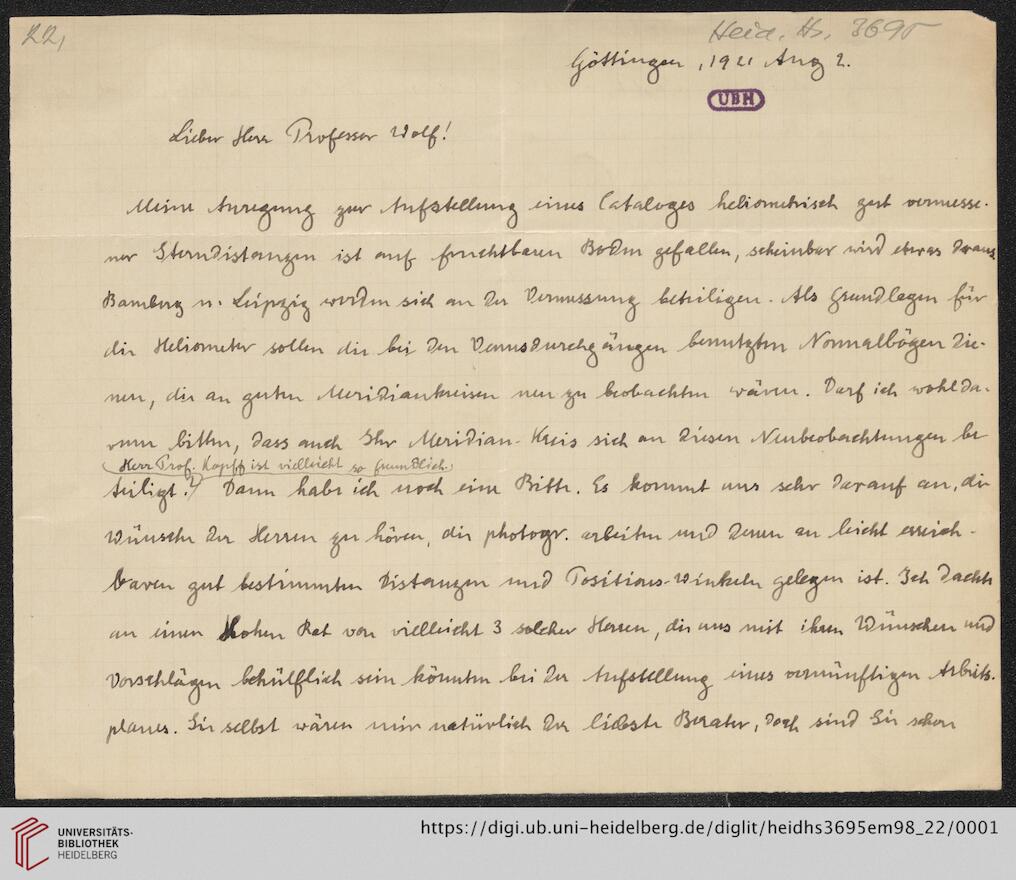 22,
Heid. Hs. 3695
Göttingen, 1921 Aug 2.
UBH
Lieber Herr Professor Wolf!
Meine Anregung zur Aufstellung eines Cataloges heliometrisch gut vermesse-
ner Sterndistanzen ist auf fruchtbaren Boden gefallen, scheinbar wird etwas daraus
Bamberg u. Leipzig werden sich an der Vermessung beteiligen. Als Grundlagen für
die Heliometer sollen die bei den Venusdurchgängen benutzten Normalbögen die-
nen, die an guten Meridiankreisen neu zu beobachten wären. Darf ich wohl da-
rum bitten, dass auch Ihr Meridian-Kreis sich an diesen Neubeobachtungen be
(Herr Prof. Kopff ist vielleicht so freundlich.)
teiligt? Dann habe ich noch eine Bitte. Es kommt uns sehr darauf an, die
Wünsche der Herren zu hören, die photogr. arbeiten und denen an leicht erreich-
baren gut bestimmten Distanzen und Positions-Winkeln gelegen ist. Ich dachte
an einen Hohen Rat von vielleicht 3 solcher Herren, die uns mit ihren Wünschen und
Vorschlägen behülflich sein könnten bei der Aufstellung eines vernünftigen Arbeits-
planes. Sie selbst wären mir natürlich der liebste Berater, doch sind Sie schon
UNIVERSITÄTS-
BIBLIOTHEK
HEIDELBERG
https://digi.ub.uni-heidelberg.de/diglit/heidhs3695em98_22/0001